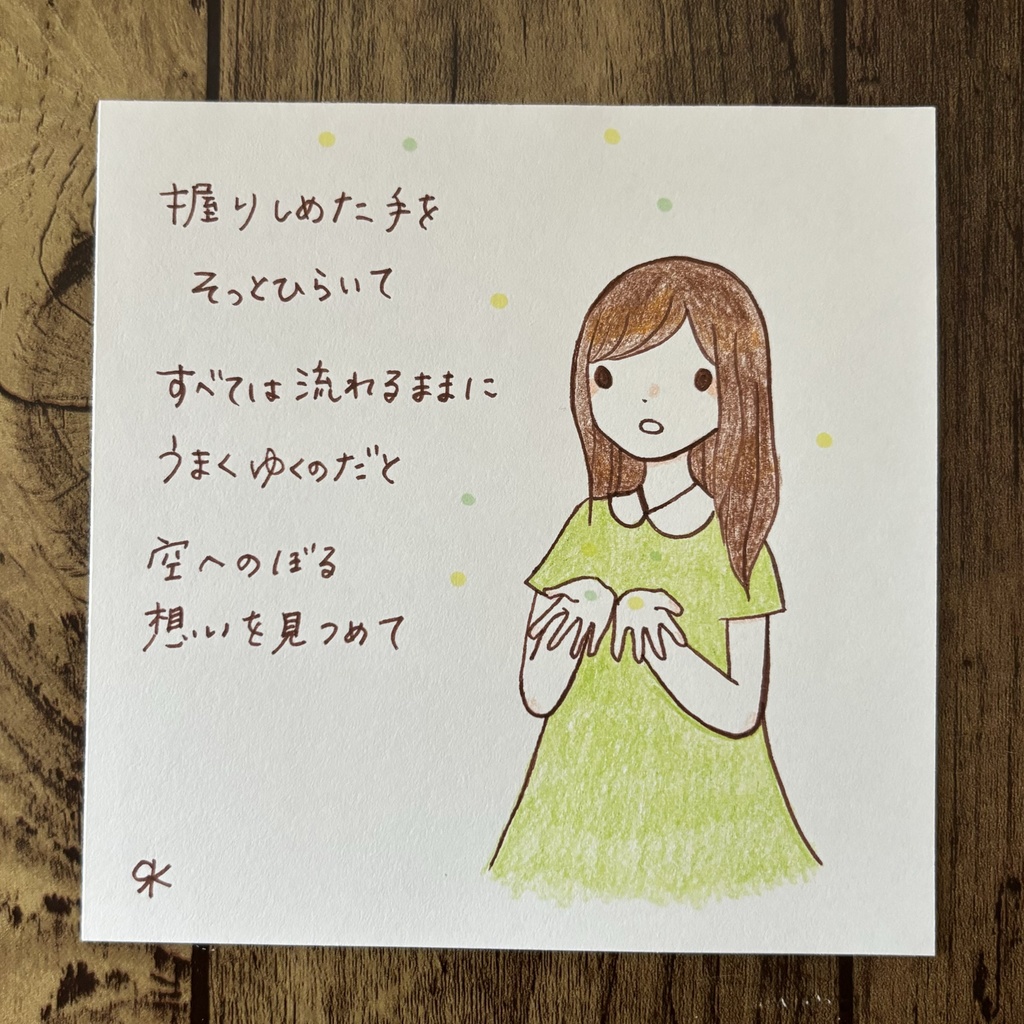 握りしめた手を
そっとひらいて
すべては流れるままに
うまくゆくのだと
空へのぼる
想いを見つめて